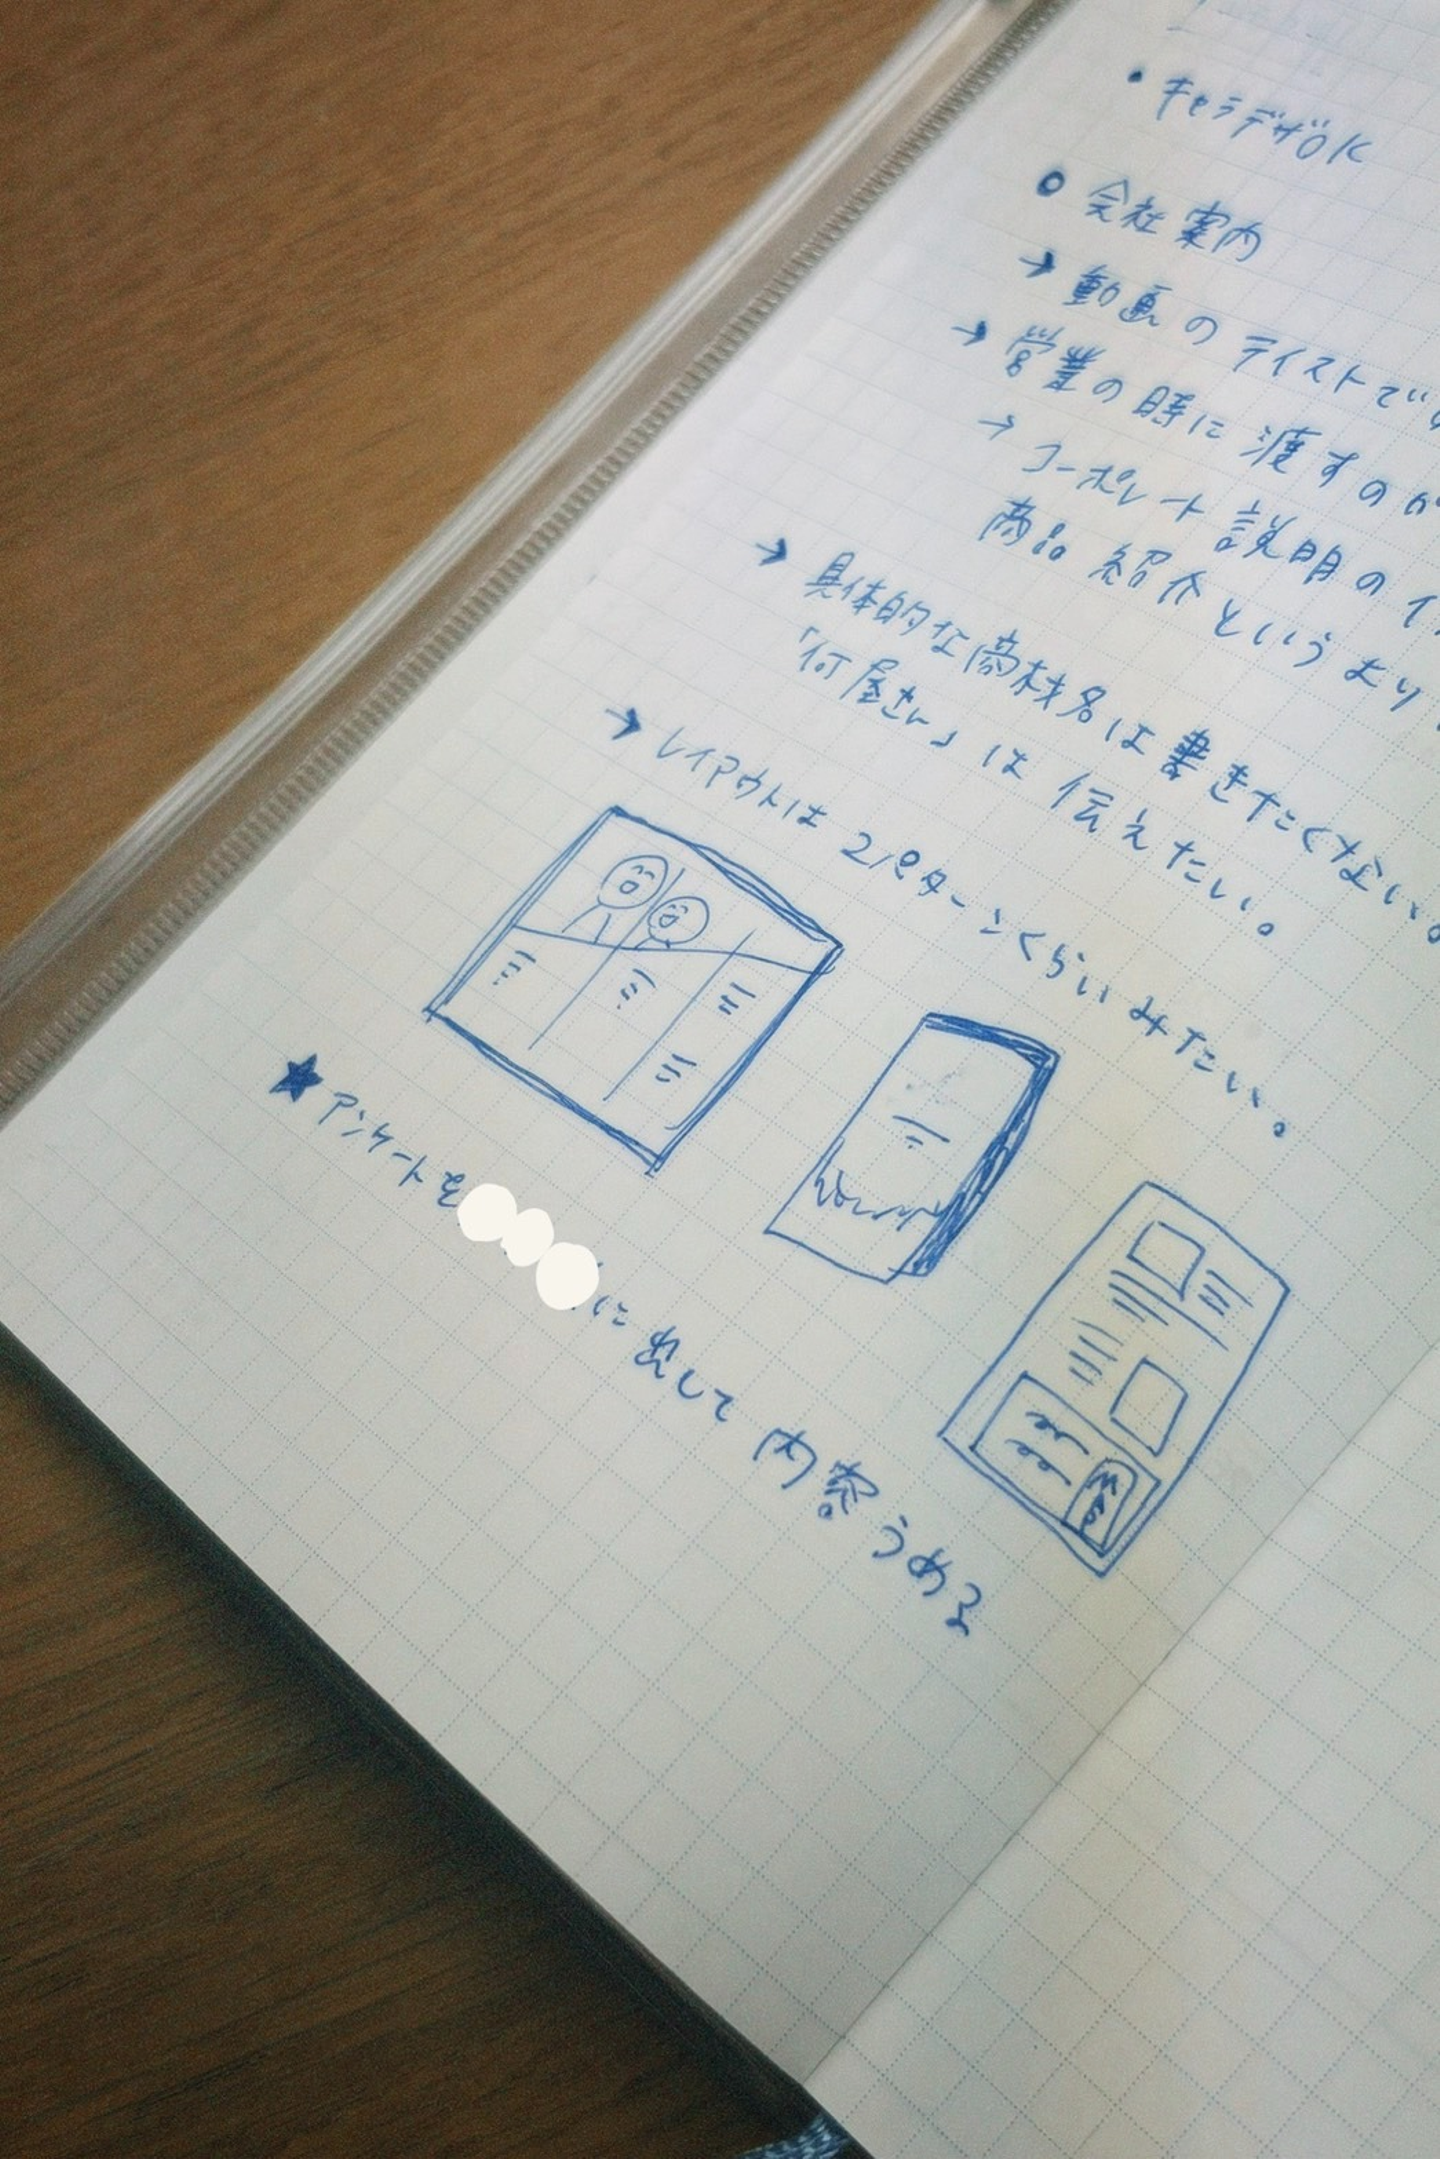 ・キャラデザOK
○ 会社案内
→ 動画のテイストで
→ 営業の時に渡すのが
→ コーポレート説明の
商品紹介というより
→ 具体的な商材名は書きたくない。
「何屋さん」は伝えたい。
→ レイアウトは2パターンくらいみたい。
★ アンケートを
に出して内容うめる